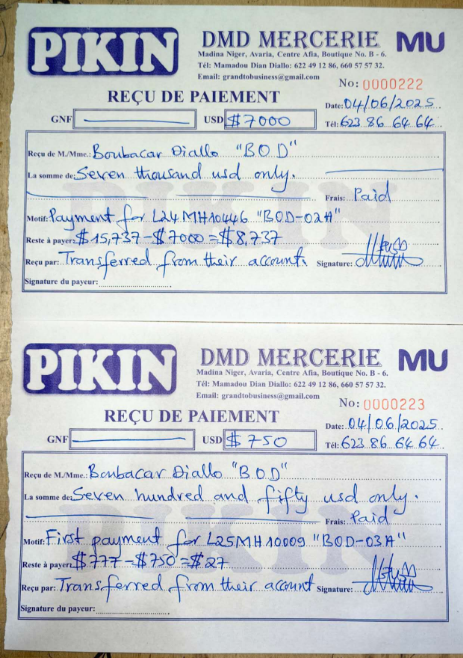 PIKIN
DMD MERCERIE MU
Madina Niger, Avaria, Centre Afia, Boutique No. B - 6.
Tél: Mamadou Dian Diallo: 622 49 12 86, 660 57 57 32.
Email: grandtobusiness@gmail.com
No: 0000222
REÇU DE PAIEMENT
Date: 04/06/2025
GNF USD $7000 Tél: 623 86 64 64
Reçu de M./Mme: Boubacar Diallo "B.O.D"
La somme de: Seven thousand usd only.
Frais: Paid
Motif: Payment for L24MH10446 "BOD-02A"
Reste à payer: $15,737-$7000=$8,737
Reçu par: Transferred from their account. Signature:
Signature du payeur:
PIKIN
DMD MERCERIE MU
Madina Niger, Avaria, Centre Afia, Boutique No. B - 6.
Tél: Mamadou Dian Diallo: 622 49 12 86, 660 57 57 32.
Email: grandtobusiness@gmail.com
No: 0000223
REÇU DE PAIEMENT
Date: 04/06/2025
GNF USD $750 Tél: 623 86 64 64
Reçu de M./Mme: Boubacar Diallo "B.O.D"
La somme de: Seven hundred and fifty usd only.
Frais: Paid
Motif: First payment for L25MH10009 "BOD-03A"
Reste à payer: $777-$750=$27
Reçu par: Transferred from their account Signature:
Signature du payeur: